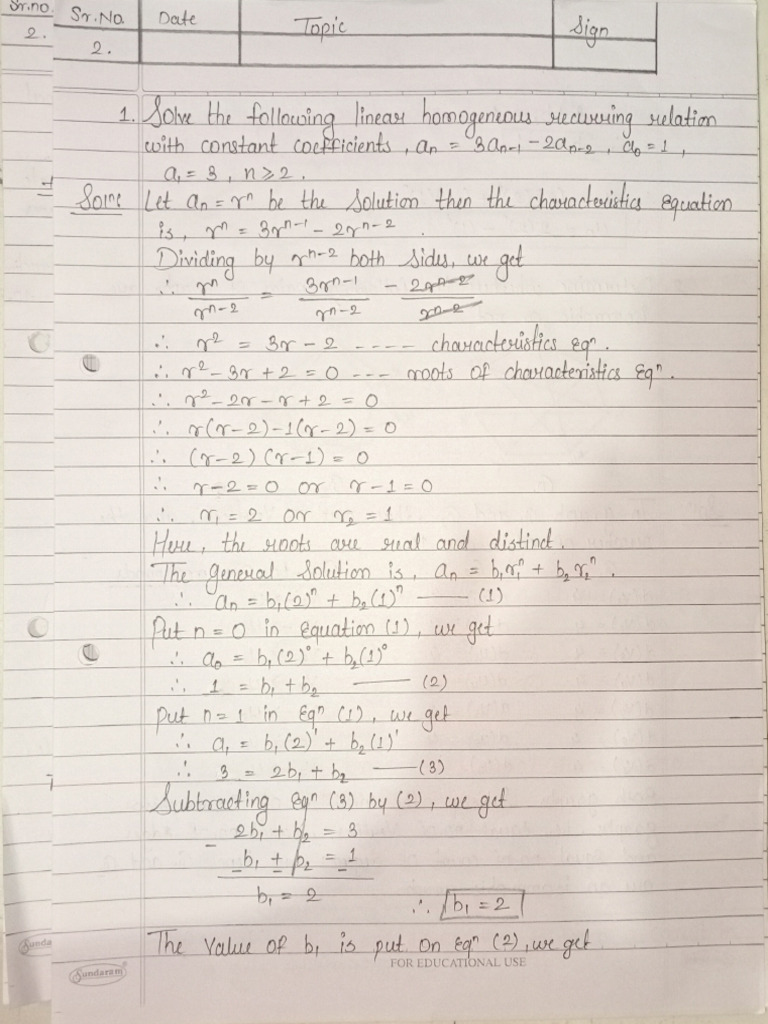 Sr.no.
2.
Sr.No. Date Topic Sign
2.
1. Solve the following linear homogeneous recurring relation
with constant coefficients, aₙ = 3aₙ₋₁ - 2aₙ₋₂, a₀ = 1,
a₁ = 3, n ≥ 2.
Solnː Let aₙ = rⁿ be the solution then the characteristics equation
is, rⁿ = 3rⁿ⁻¹ - 2rⁿ⁻² .
Dividing by rⁿ⁻² both sides, we get
∴ rⁿ/rⁿ⁻² = 3rⁿ⁻¹/rⁿ⁻² - 2rⁿ⁻²/rⁿ⁻²
∴ r² = 3r - 2 ---- characteristics Eqⁿ.
∴ r² - 3r + 2 = 0 --- roots of characteristics Eqⁿ.
∴ r² - 2r - r + 2 = 0
∴ r(r-2) - 1(r-2) = 0
∴ (r-2) (r-1) = 0
∴ r-2 = 0 or r-1 = 0
∴ r₁ = 2 or r₂ = 1
Here, the roots are real and distinct.
The general solution is, aₙ = b₁r₁ⁿ + b₂r₂ⁿ .
∴ aₙ = b₁(2)ⁿ + b₂(1)ⁿ —— (1)
Put n = 0 in equation (1), we get
∴ a₀ = b₁(2)⁰ + b₂(1)⁰
∴ 1 = b₁ + b₂ —— (2)
Put n = 1 in Eqⁿ (1), we get
∴ a₁ = b₁(2)¹ + b₂(1)¹
∴ 3 = 2b₁ + b₂ —— (3)
Subtracting Eqⁿ (3) by (2), we get
2b₁ + b₂ = 3
- b₁ + b₂ = 1
- - -
b₁ = 2 ∴ b₁ = 2
The value of b₁ is put on Eqⁿ (2), we get
FOR EDUCATIONAL USE
Sundaram
Sunda